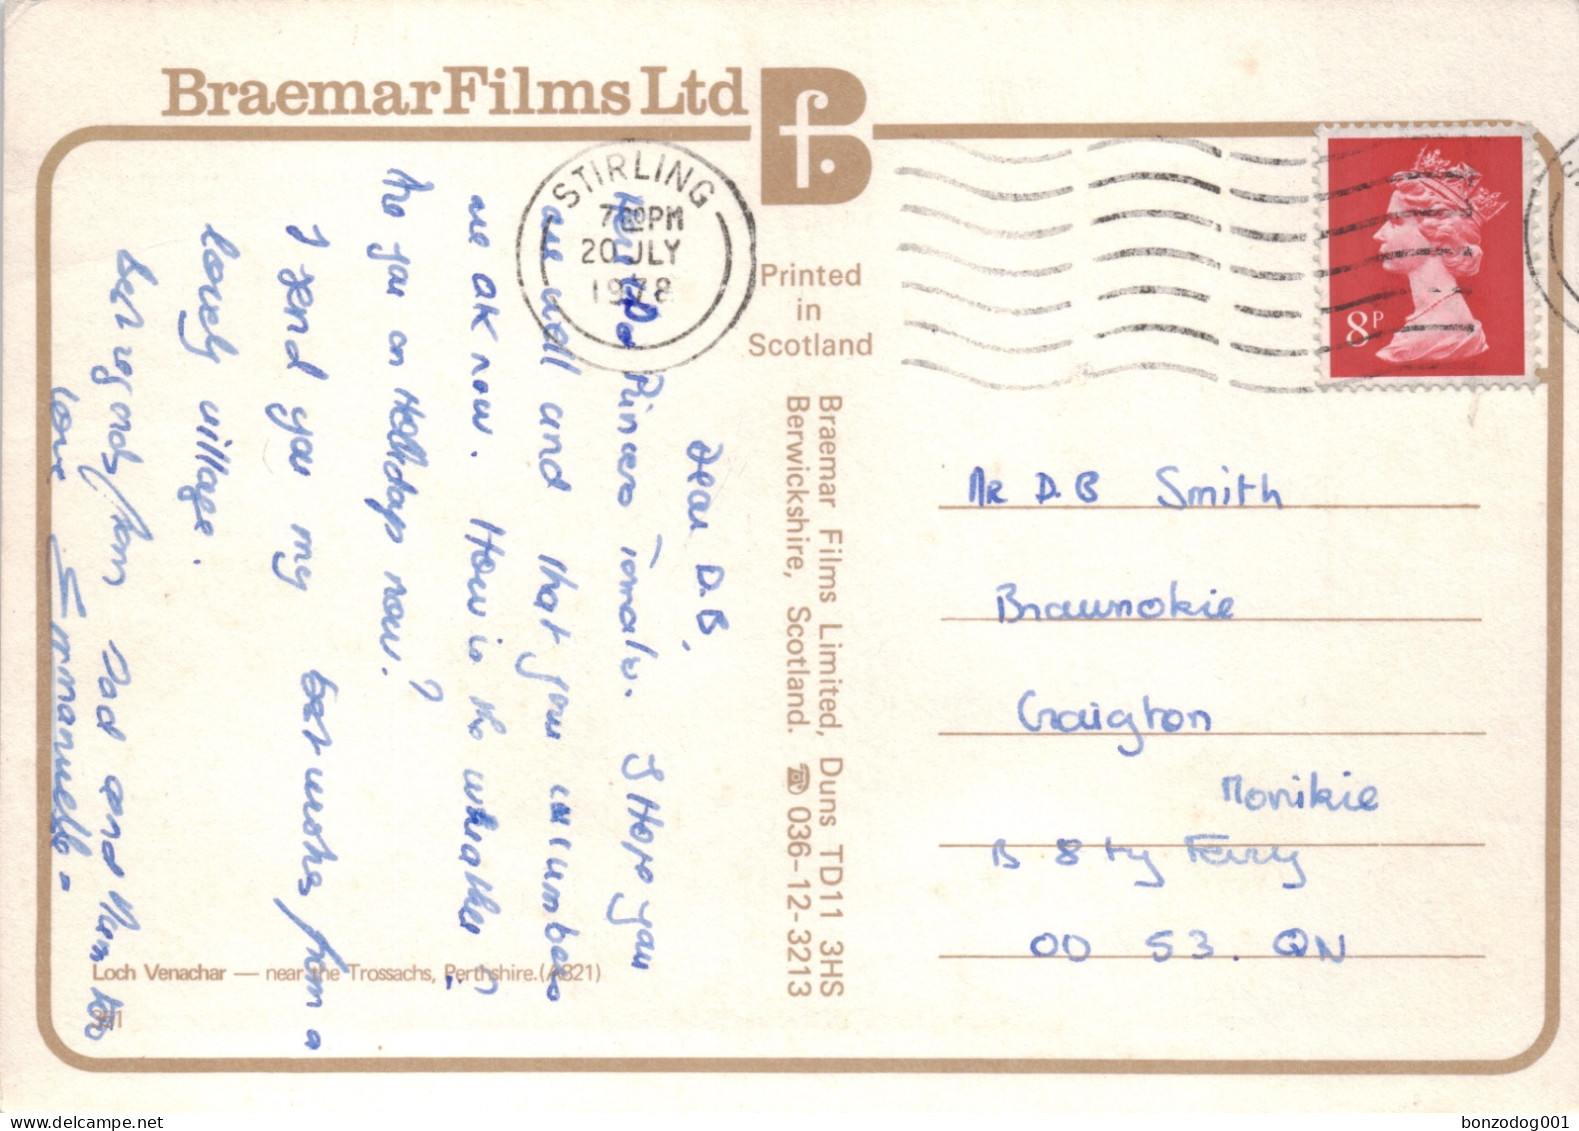 Braemar Films Ltd
Bf.
STIRLING
7 30 PM
20 JLY
1978
8P
Printed
in
Scotland
Braemar Films Limited, Duns TD11 3HS
Berwickshire, Scotland. ☎ 036-12-3213
Dear D.B,
Tomalu. I Hope you
are well and that your cucumbers
are OK now. How is the weather ?
Are you on Holidays now?
I send you my best wishes from a
lovely village.
Best regards from Dad and Mam
love Emmanuelle =
Mr D.B Smith
Brawnokie
Craigton
Monikie
B 8ty Ferry
OD 53. QN
Loch Venachar — near the Trossachs, Perthshire. (A821)
bonzodog001